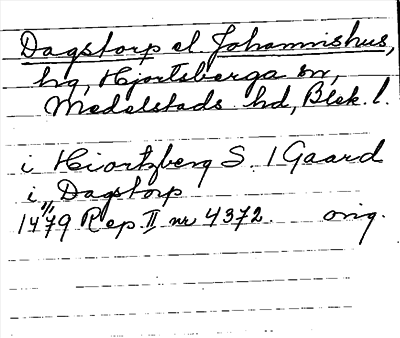 Dagstorp el. Johannishus,
hg, Hjortsberga sn,
Medelstads hd, Blek. l.
i Hiortzberg S. 1 Gaard
i Dagstorp
14 79 Rep. II nr 4372. orig.